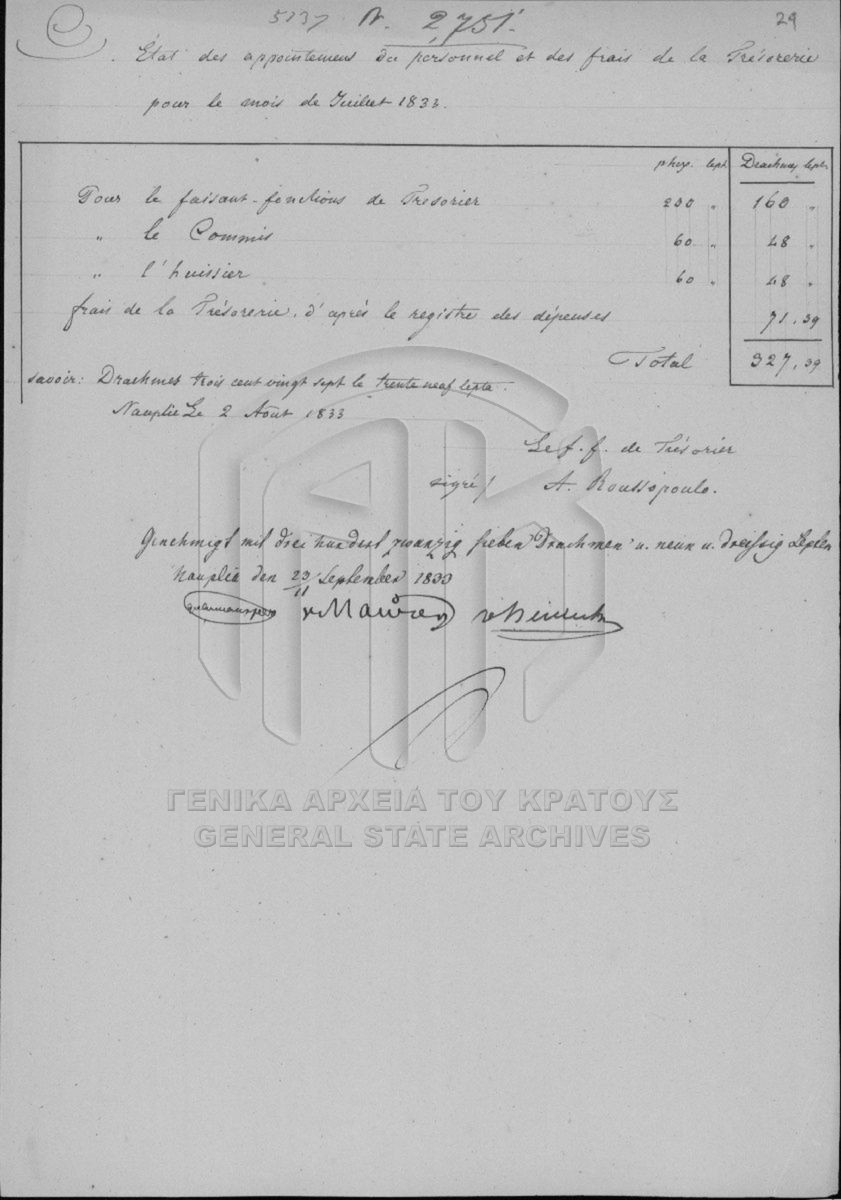 5237 N. 2,751. 29
État des appointemens du personnel et des frais de la Trésorerie
pour le mois de Juillet 1833.
phoy. lept. Drachmes lepta
Pour le faisant-fonctions de Trésorier 200 " 160 "
" le Commis 60 " 48 "
" l'huissier 60 " 48 "
frais de la Trésorerie, d'après le registre des dépenses 71. 39
Total 327. 39
savoir: Drachmes trois cent vingt sept le trente neuf lepta.
Nauplie Le 2 Août 1833
Le f. f. de Trésorier
signé/ A. Roussopoulo.
Genehmigt mit drei hundert zwanzig sieben Drachmen u. neun u. dreissig Lepten
Nauplie den 23/11 September 1833
v Maurer
ΓΕΝΙΚΑ ΑΡΧΕΙΑ ΤΟΥ ΚΡΑΤΟΥΣ
GENERAL STATE ARCHIVES